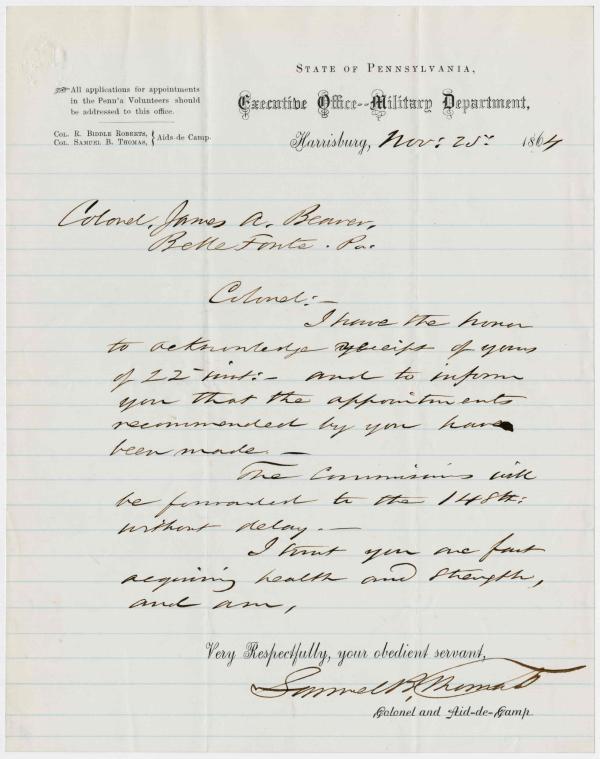 STATE OF PENNSYLVANIA,
All applications for appointments
in the Penn'a Volunteers should
be addressed to this office.
Executive Office--Military Department,
COL. R. BIDDLE ROBERTS,
COL. SAMUEL B. THOMAS,
Aids-de-Camp.
Harrisburg, Nov: 25" 1864
Colonel. James A. Beaver,
Belle Fonte. Pa.
Colonel:—
I have the honor
to acknowledge receipt of yours
of 22" inst:— and to inform
you that the appointments
recommended by you have
been made.—
The Commissions will
be forwarded to the 148th:
without delay.—
I trust you are fast
acquiring health and strength,
and am,
Very Respectfully, your obedient servant,
Samuel B. Thomas
Colonel and Aid-de-Camp.